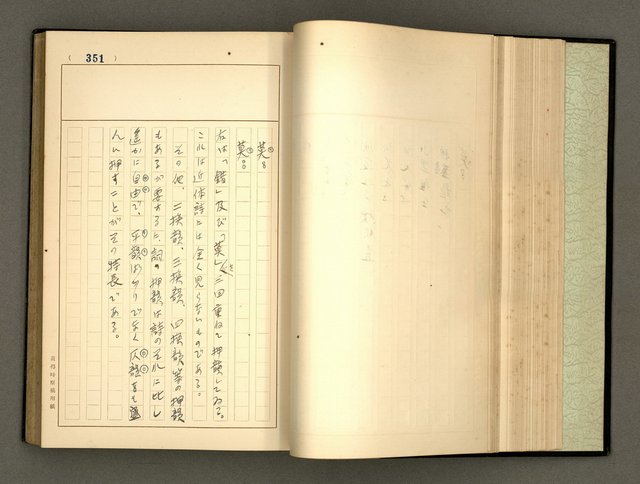 (351)
莫。
莫。
右は「錯」及び「莫」を三回重ねて押韻してゐる。
これは近体詩には全く見られないものである。
その他、二換韻、三換韻、四換韻等の押韻
もあるが要するに、詞の押韻は詩のそれに比し
遙かに自由で、平韻ばかりでなく仄韻をも盛
んに押すことがその特長である。
黃得時原稿用紙